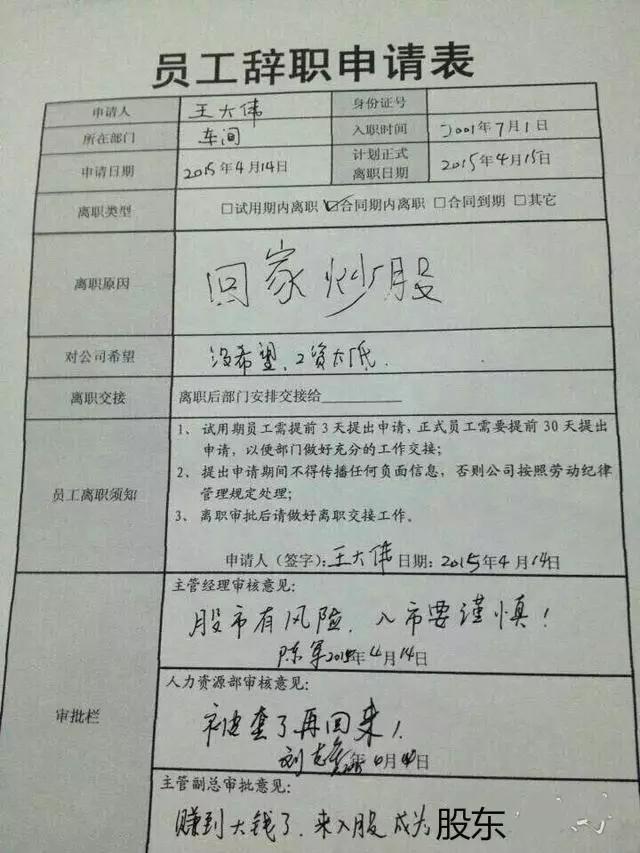 员工辞职申请表
申请人 王大伟 身份证号
所在部门 车间 入职时间 2001年7月1日
申请日期 2015年4月14日 计划正式离职日期 2015年4月15日
离职类型 □试用期内离职 ☑合同期内离职 □合同到期 □其它
离职原因 回家炒股
对公司希望 没希望、工资太低.
离职交接 离职后部门安排交接给________
员工离职须知
1、试用期员工需提前3天提出申请,正式员工需要提前30天提出
申请,以便部门做好充分的工作交接;
2、提出申请期间不得传播任何负面信息,否则公司按照劳动纪律
管理规定处理;
3、离职审批后请做好离职交接工作。
申请人(签字):王大伟 日期:2015年4月14日
审批栏
主管经理审核意见:
股市有风险.入市要谨慎!
陈军 2015年4月14日
人力资源部审核意见:
了再回来!
年 月 日
主管副总审批意见:
赚到大钱了.来入股成为 股东